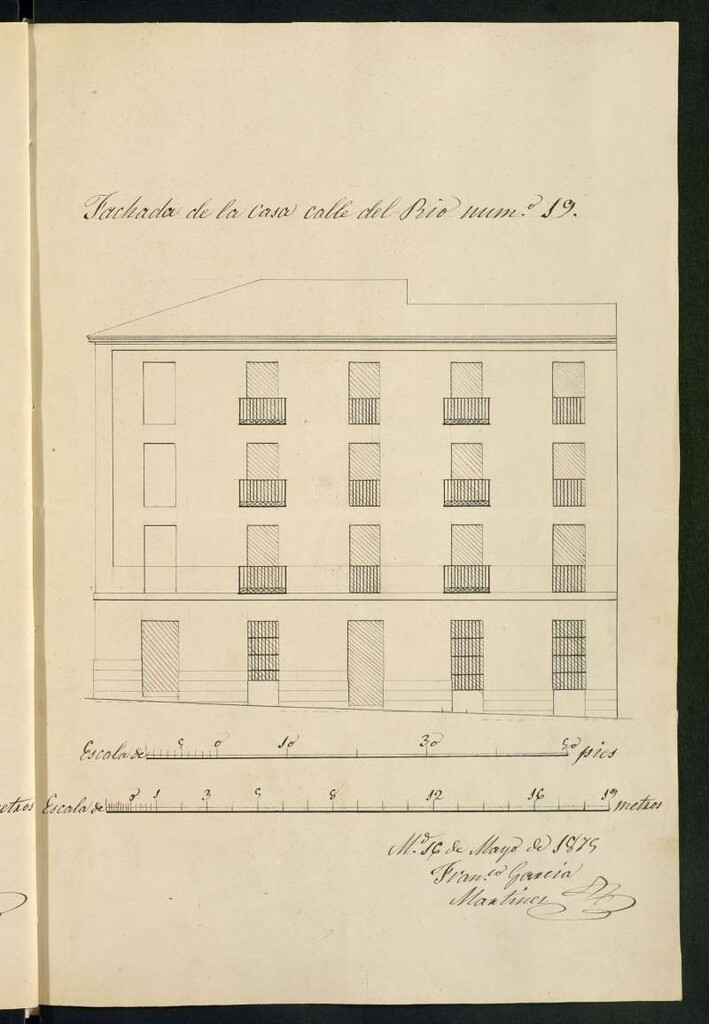 Fachada de la casa calle del Rio num.º 19.
Escala de 5 0 10 30 50 pies
etros Escala de 0 1 3 5 8 12 16 19 metros
M.d 16 de Mayo de 1875
Fran.co Garcia
Martinez